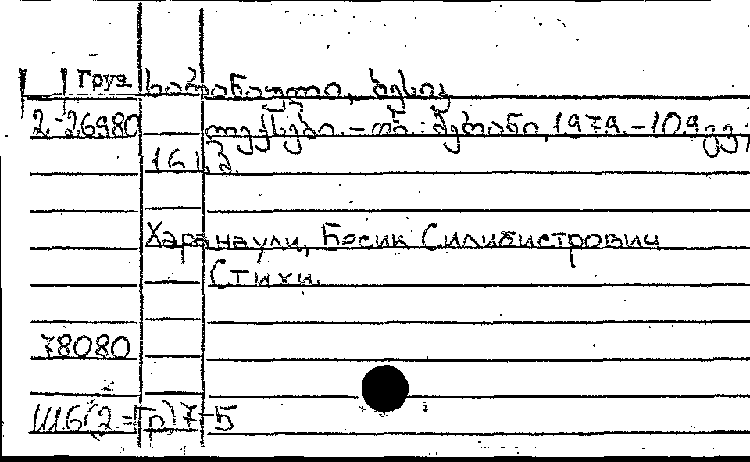 Груз ხარანაული, ბესიკ
2-26980 ლექსები. – თბ.: მერანი, 1979. – 109 გვ;
16 
Харанаули, Бесик Силибистрович
Стихи.
78080
Ш6(2=Гр)7-5